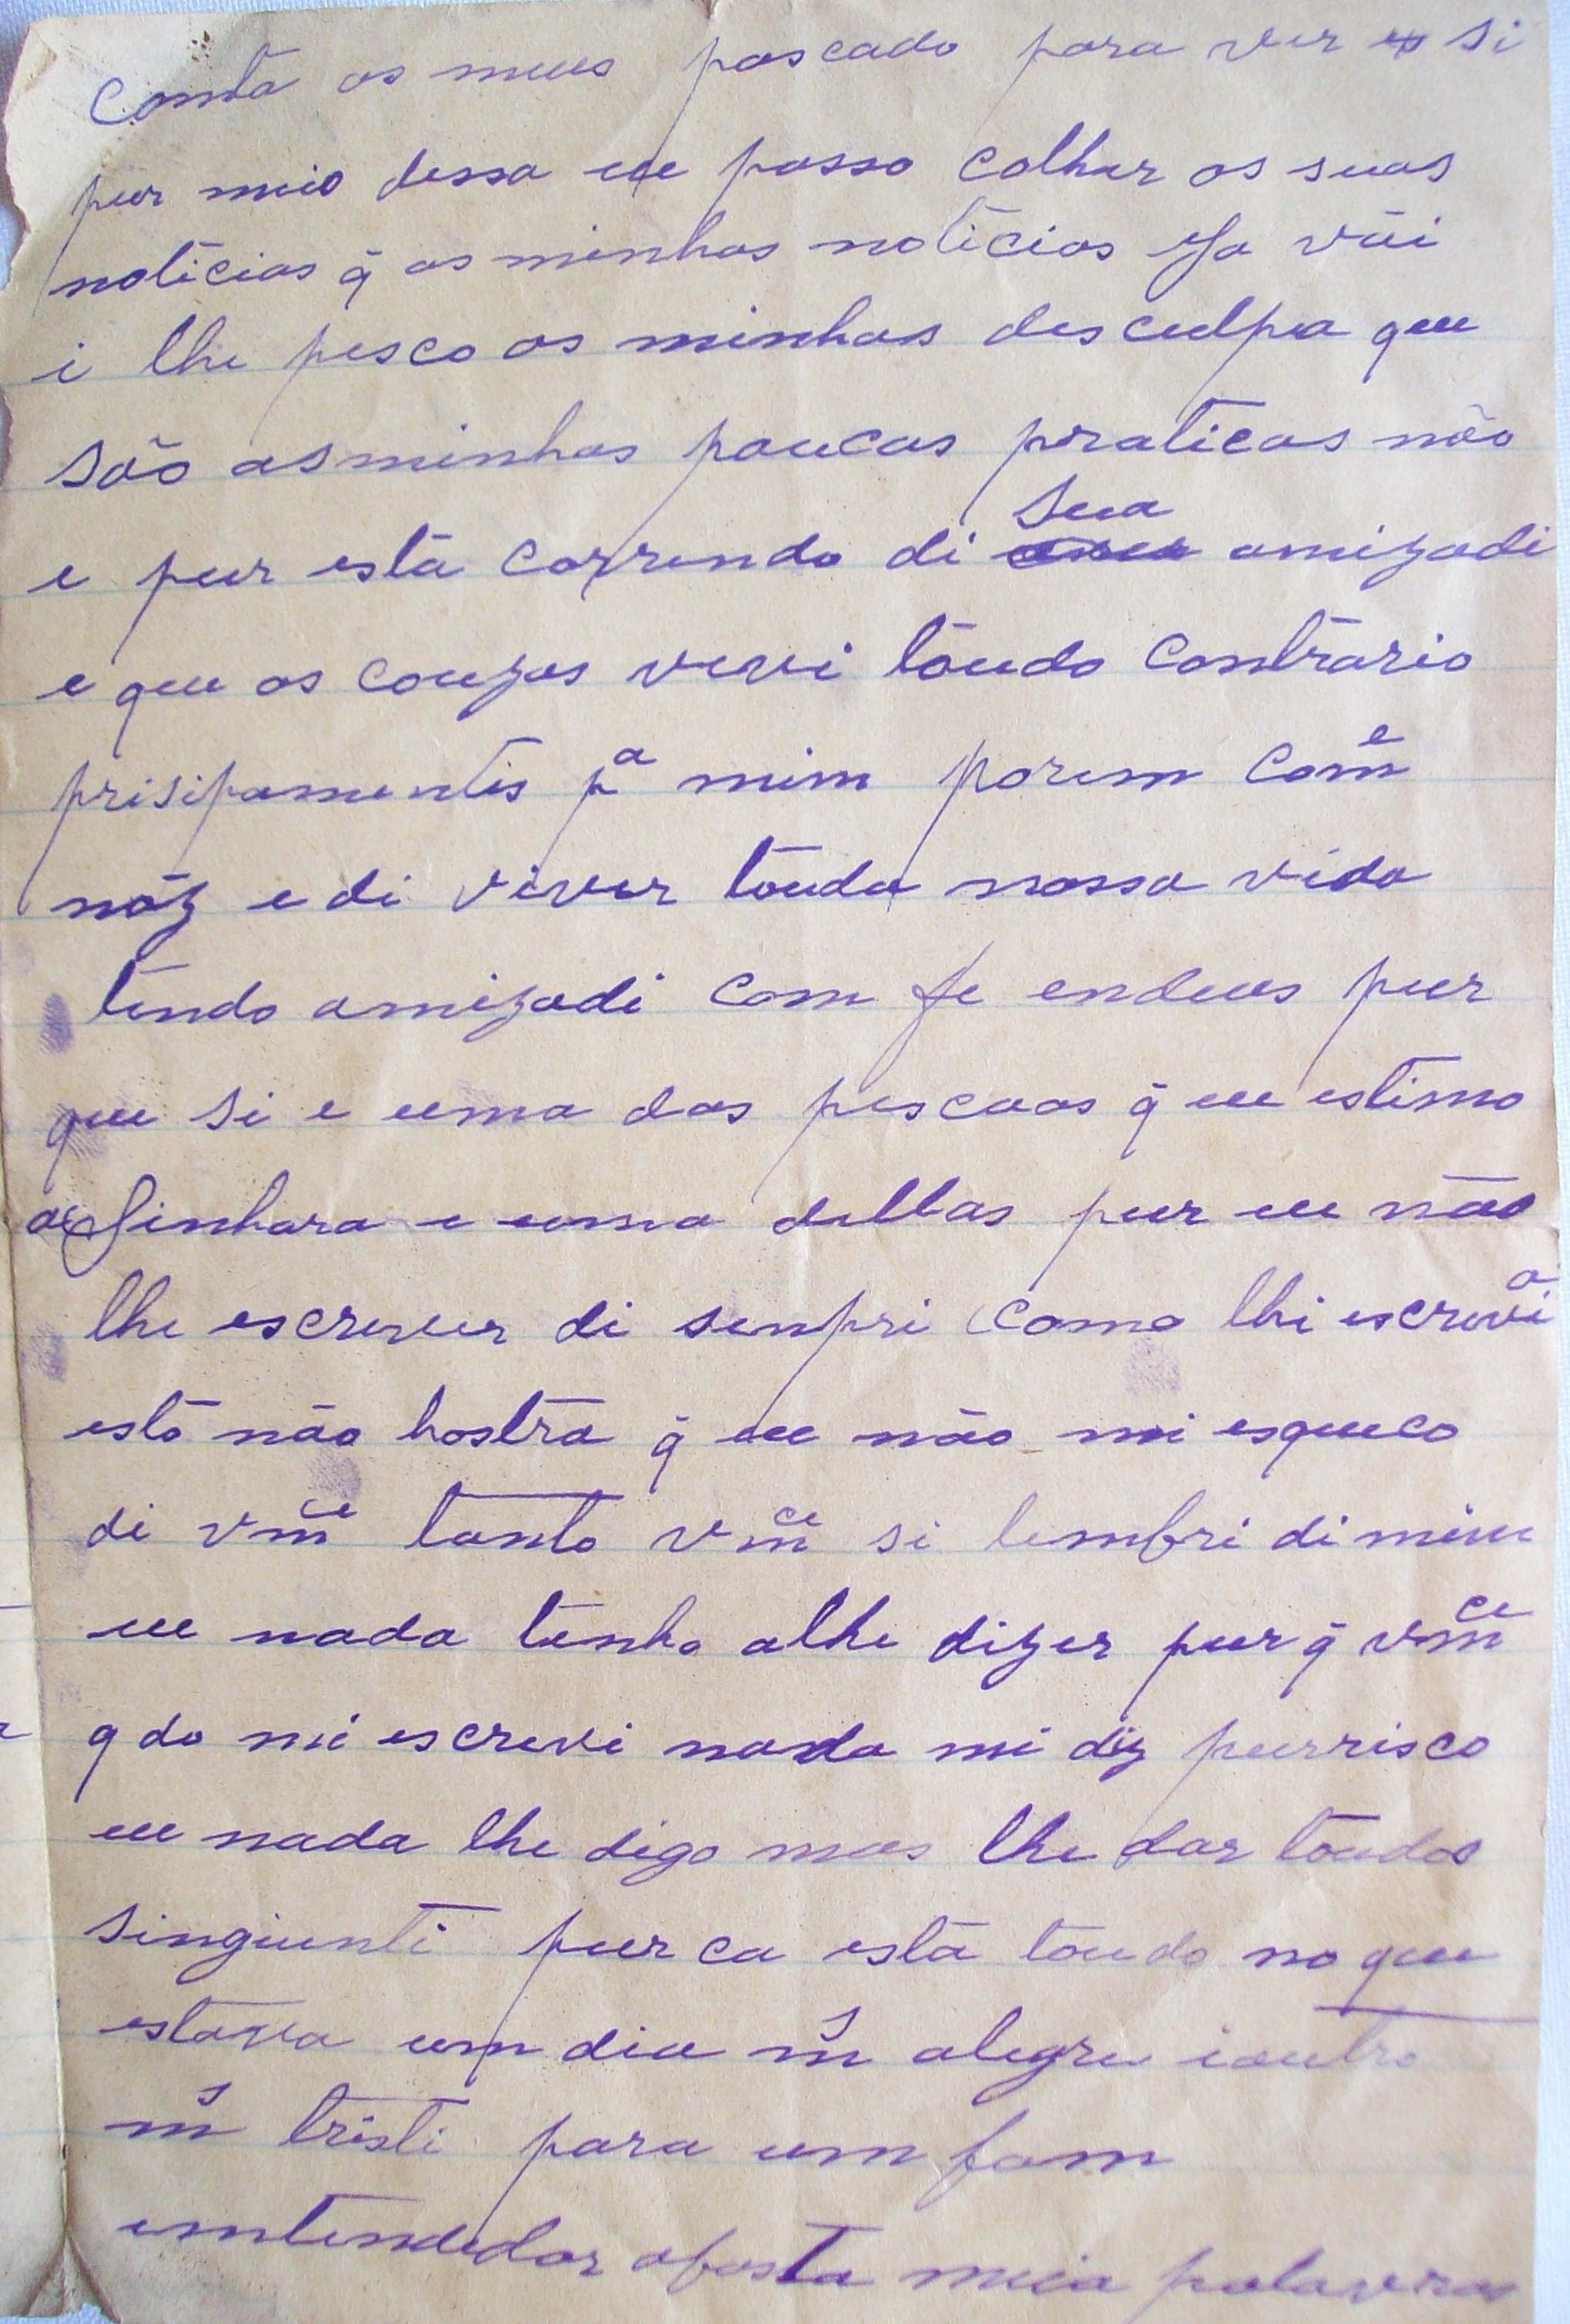 Conta os meus pascado para ver si
pur meio dessa eu posso colher as suas
noticias q̃ as minhas noticias Ja vãi
i lhe pesco as minhas desculpa que
são asminhas poucas praticas não
e pur està correndo di sua amizadi
e que as couzas vevi toudo contrario
prisipamentis pª mim porem Com̃e
nóz e di viver touda nossa vida
tendo amizadi com fe endeus pur
que si e uma das pescoas q̃ eu estimo
a Sinhora e uma dellas pur eu não
lhe escrever di senpri como lhi escrevia
està não hostra q̃ eu não mi esqueco
di vm̃ce tanto vm̃ce si lembri dimim
eu nada tenho alhe dizer pur q̃ vm̃ce
q do mi escrevi nada mi diz purrisco
eu nada lhe digo mas lhe dar toudos
singiunti pur ca està toudo no que
estava um dia m̃s alegre ioutro
m̃s tristi para um fom
emtendedor abasta meia palavras